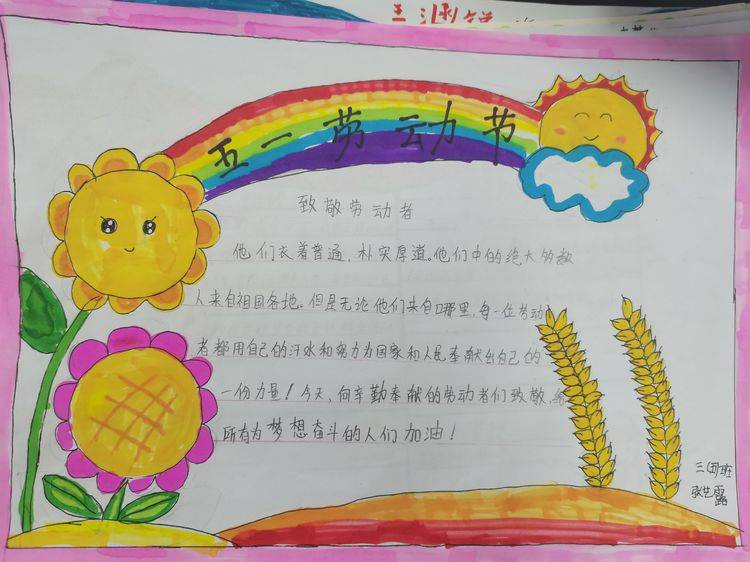 五一劳动节
致敬劳动者
他们衣着普通、朴实厚道。他们中的绝大多数
人来自祖国各地。但是无论他们来自哪里,每一位劳动
者都用自己的汗水和努力为国家和人民奉献出自己的
一份力量!今天,向辛勤奉献的劳动者们致敬,给
所有为梦想奋斗的人们加油!
三(4)班
张艺露